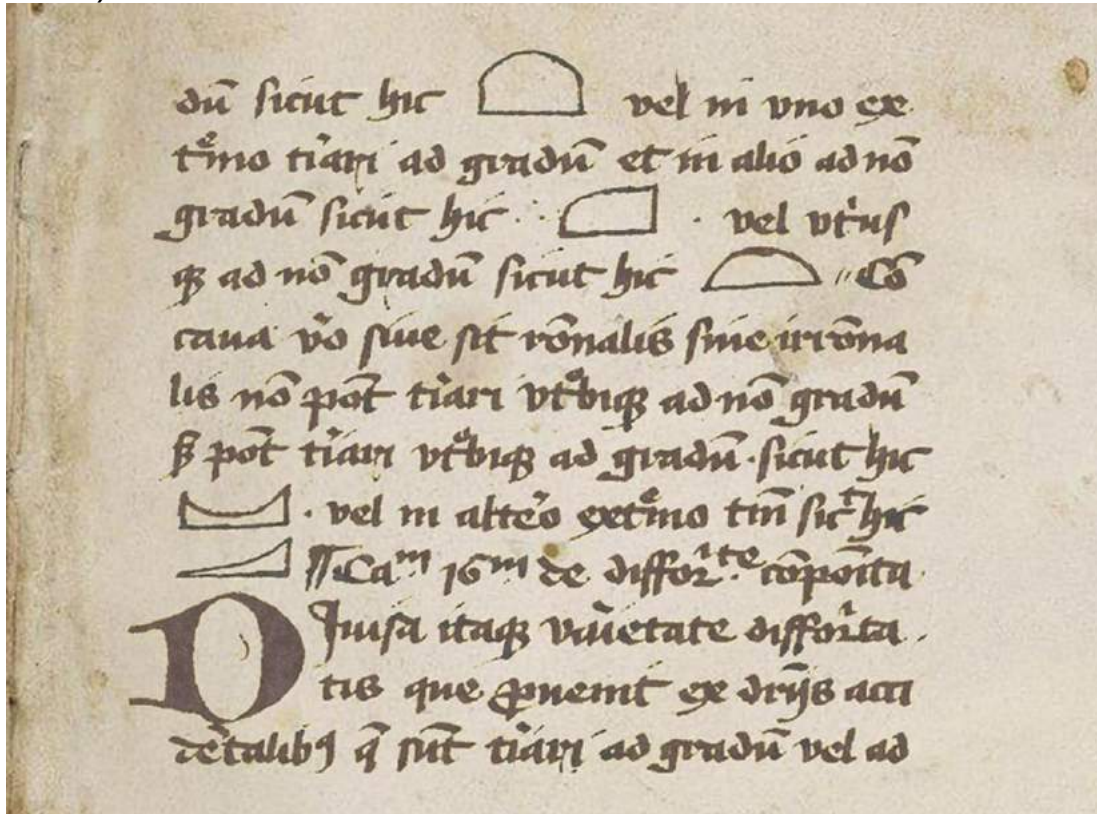 dū sicut hic vel in vno ex
tͦmo tiͥari ad gradū et in alio ad nō
gradū sicut hic · vel vtͥus
qꝫ ad nō gradū sicut hic Cō
caua vͦo siue sit rōnalis siue irrōna
lis nō pōt tiͥari vtͦbiqꝫ ad nō gradū
sꝫ pōt tiͥari vtͦbiqꝫ ad gradū · sicut hic
· vel in alteͦo extͦmo tm̄ sicͭ hic
¶ Caᵐ 16ᵐ de difforͥᵗᵉ cōpōita
Diuisa itaqꝫ vaͥietate difforͥta
tis que ꝓuenit ex dr̄ijs acci
dētalibꝰ q̄ sūt tiͥari ad gradū vel ad